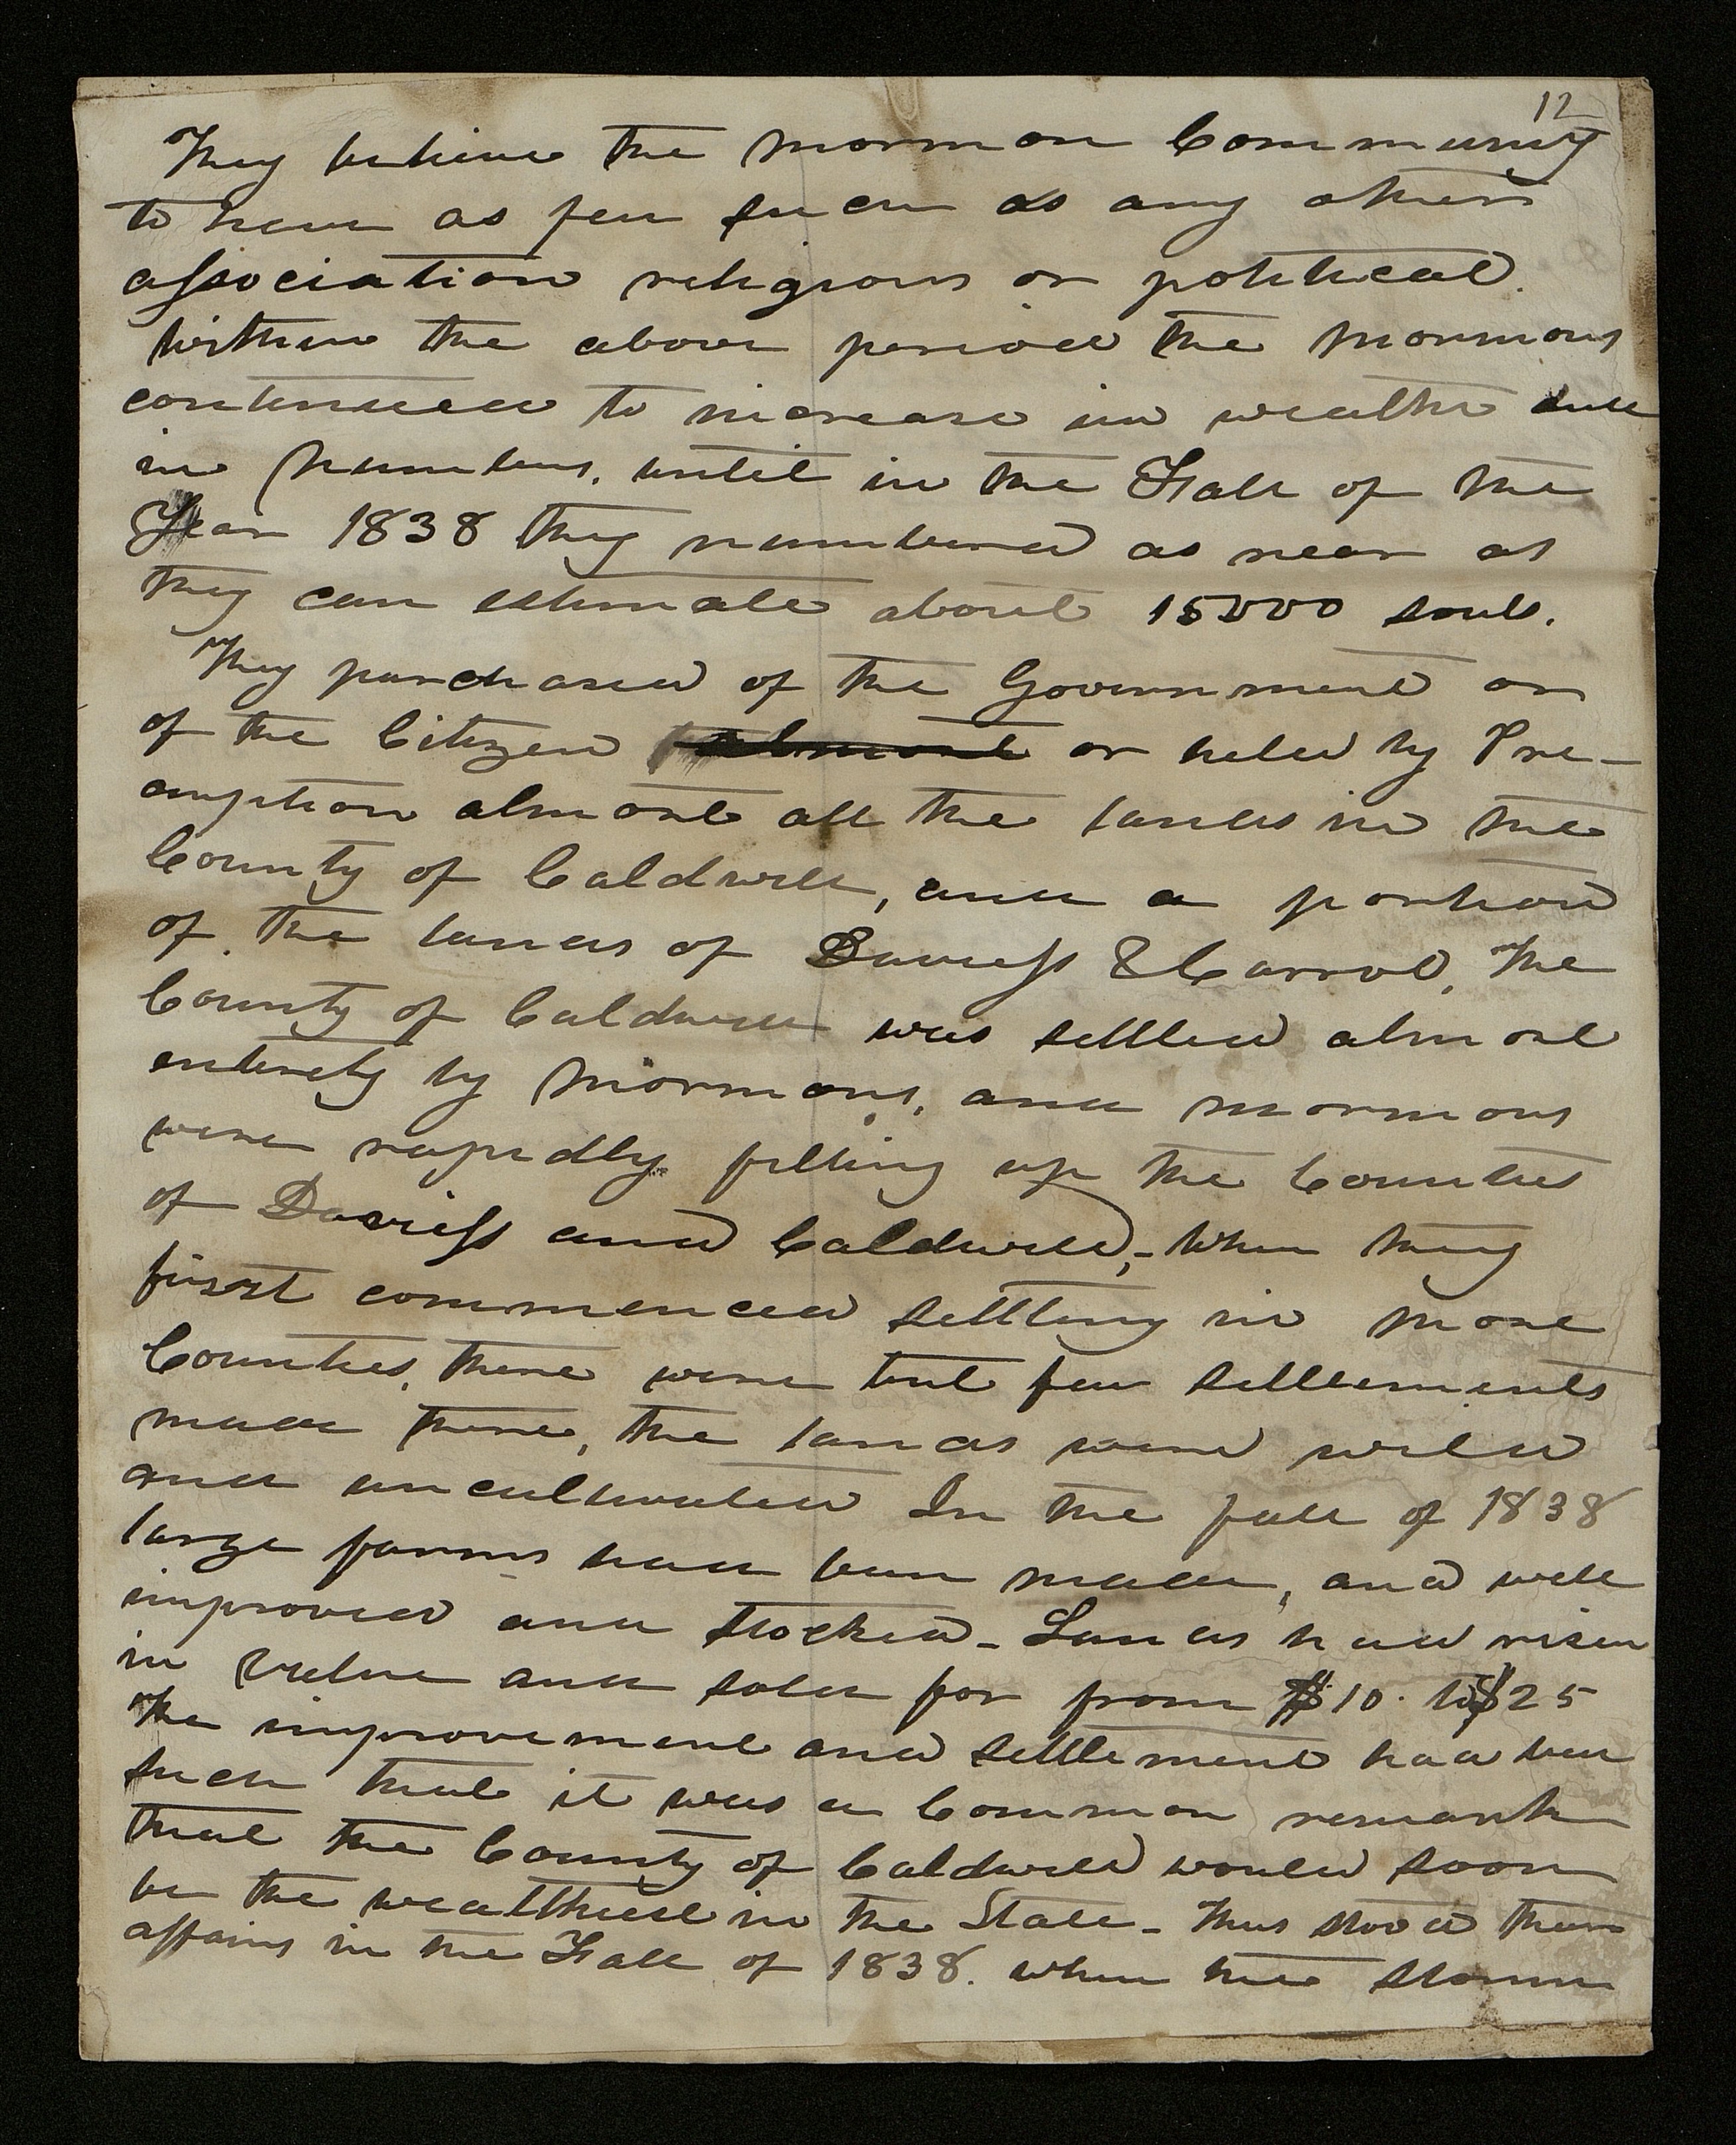 12
They believe the mormon Community
to have as few such as any other
association religious or political.
Within the above period the Mormons
continued to increase in wealth and
in Numbers, until in the Fall of the
Year 1838 they numbered as near as
they can estimate about 15000 souls.
They purchased of the Government or
of the Citizen almost or held by Pre-
emption almost all the lands in the
County of Caldwell, and a portion
of the lands of Daviess & Carrol, The
County of Caldwell was settled almost
entirely by Mormons, and mormons
were rapidly filling up the Counties
of Daviess and Caldwell,- When they
first commenced settling in those
Counties, there were but few settlements
made there, the lands were wild
and uncultivated In the fall of 1838
large farms had been made, and well
improved and stocked - Lands had risen
in value and sold for from $10. to $25
The improvement and settlement had been
such that it was a Common remark
that the County of Caldwell would soon
be the wealthiest in the State - Thus stood their
affairs in the Fall of 1838. when the storm